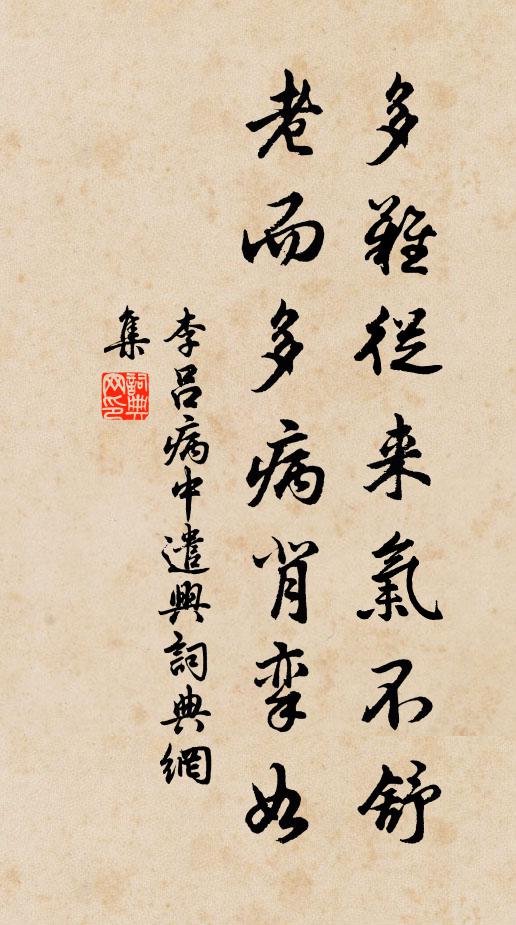 多難從来氣不舒
老而多病肖孿如
李呂病中遣興詞典網
集
詞典
网印